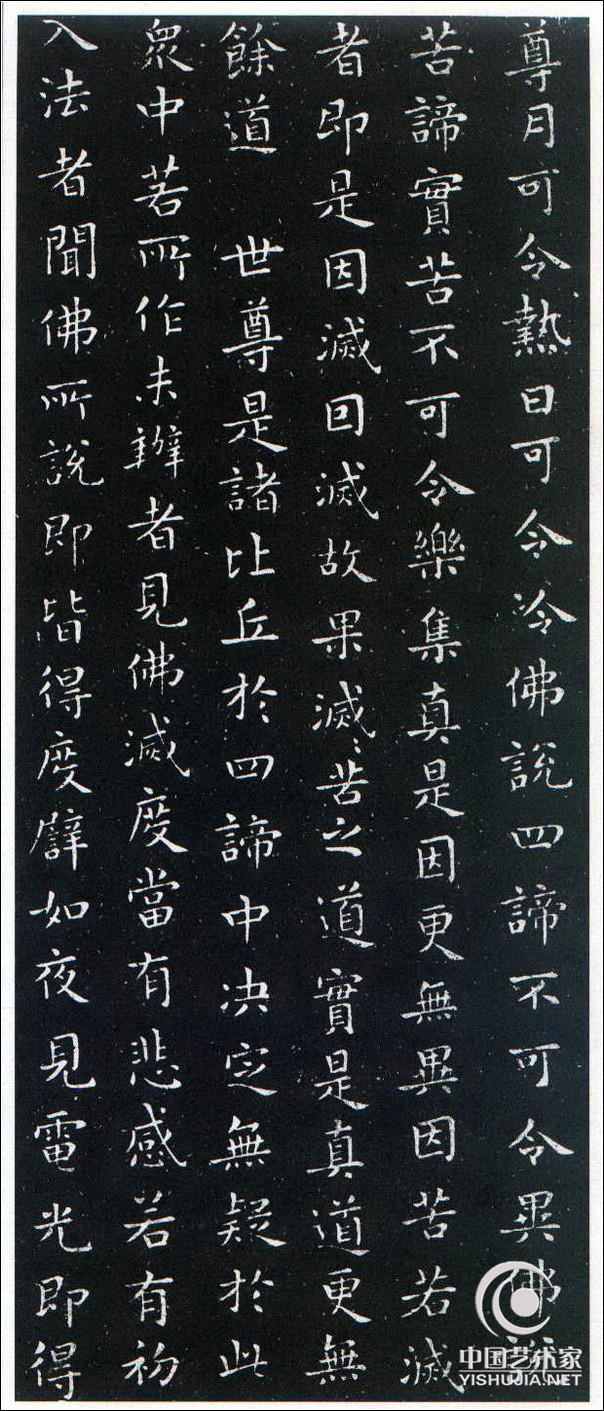 尊月可令熱日可令冷佛說四諦不可令異佛說
苦諦實苦不可令樂集真是因更無異因苦若滅
者即是因滅回滅故果滅〻苦之道實是真道更無
餘道　世尊是諸比丘於四諦中决定無疑於此
眾中若所作未辦者見佛滅度當有悲感若有初
入法者聞佛所說即皆得度譬如夜見電光即得
中国艺术家
YISHUJIA.NET